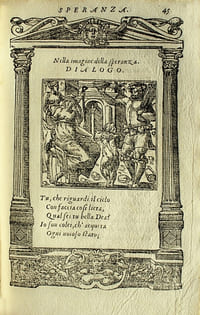 SPERANZA. 45
Nella imagine della speranza.
DIALOGO.
Tu, che riguardi il cielo
Con faccia così lieta,
Qual sei tu bella Dea?
Io son colei, ch' acqueta
Ogni noioso stato;